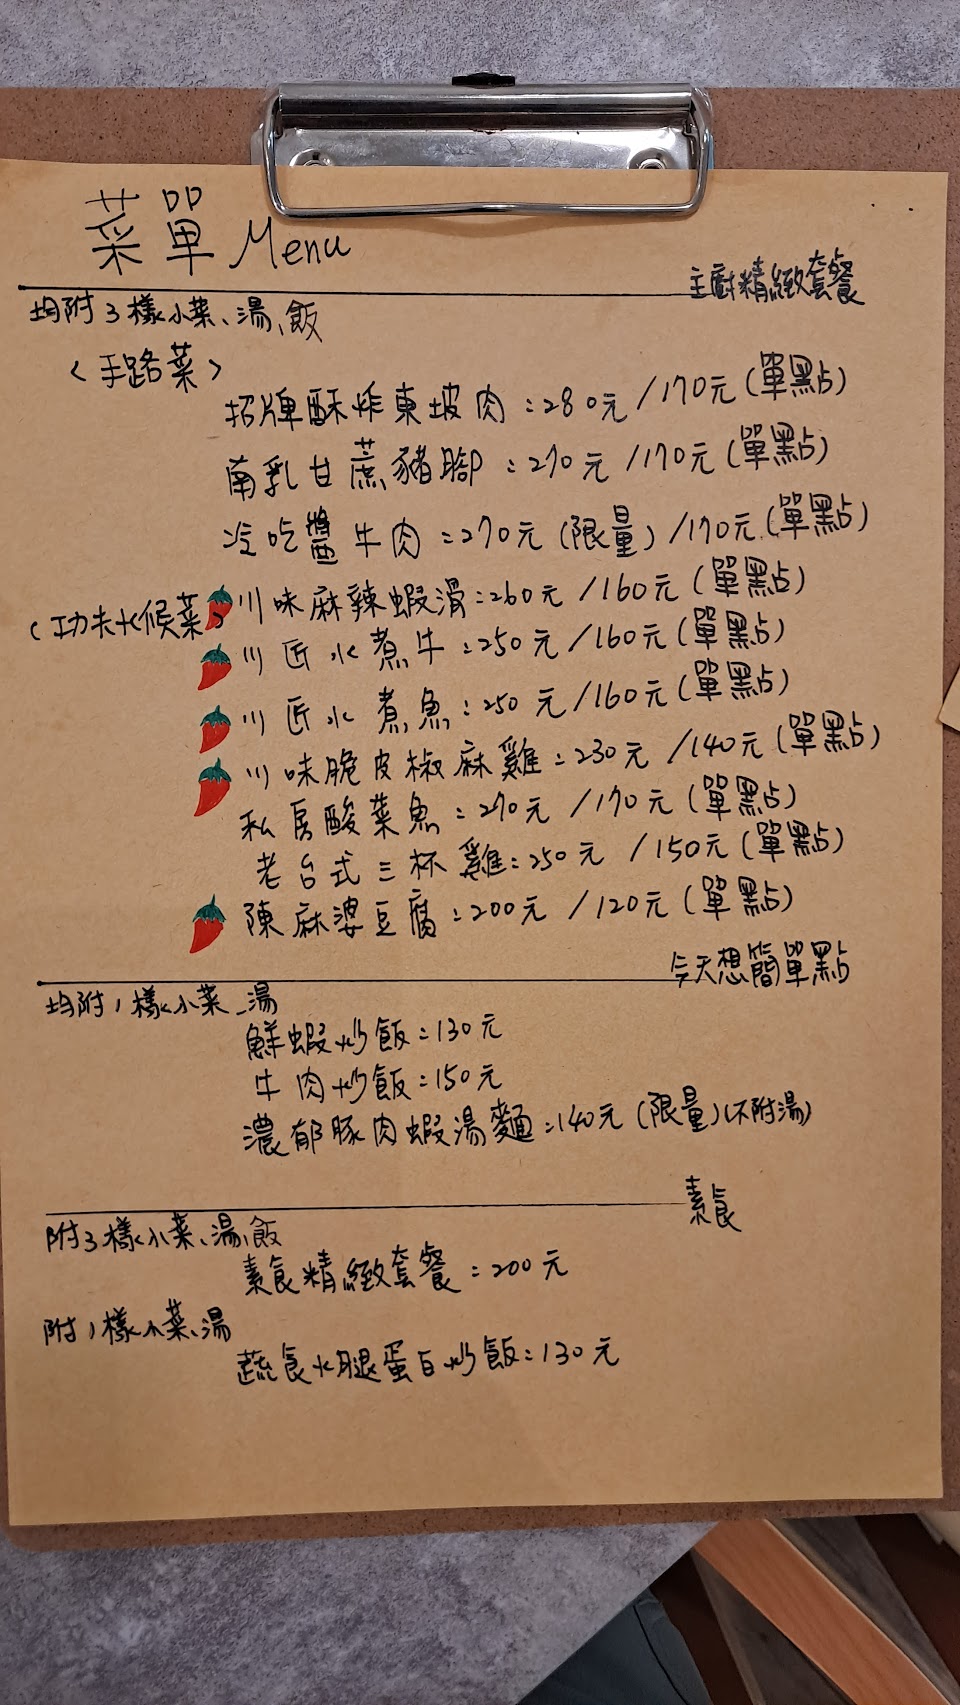 菜單 Menu
主廚精緻套餐
均附3樣小菜、湯、飯
<手路菜>
招牌酥炸東坡肉:280元/170元(單點)
南乳甘蔗豬腳:270元/170元(單點)
冷吃醬牛肉:270元(限量)/170元(單點)
(功夫火候菜)
川味麻辣蝦滑:260元/160元(單點)
川匠水煮牛:250元/160元(單點)
川匠水煮魚:250元/160元(單點)
川味脆皮椒麻雞:230元/140元(單點)
私房酸菜魚:270元/170元(單點)
老台式三杯雞:250元/150元(單點)
陳麻婆豆腐:200元/120元(單點)
今天想簡單點
均附1樣小菜、湯
鮮蝦炒飯:130元
牛肉炒飯:150元
濃郁豚肉蝦湯麵:140元(限量)(不附湯)
素食
附3樣小菜、湯、飯
素食精緻套餐:200元
附1樣小菜、湯
蔬食火腿蛋白炒飯:130元